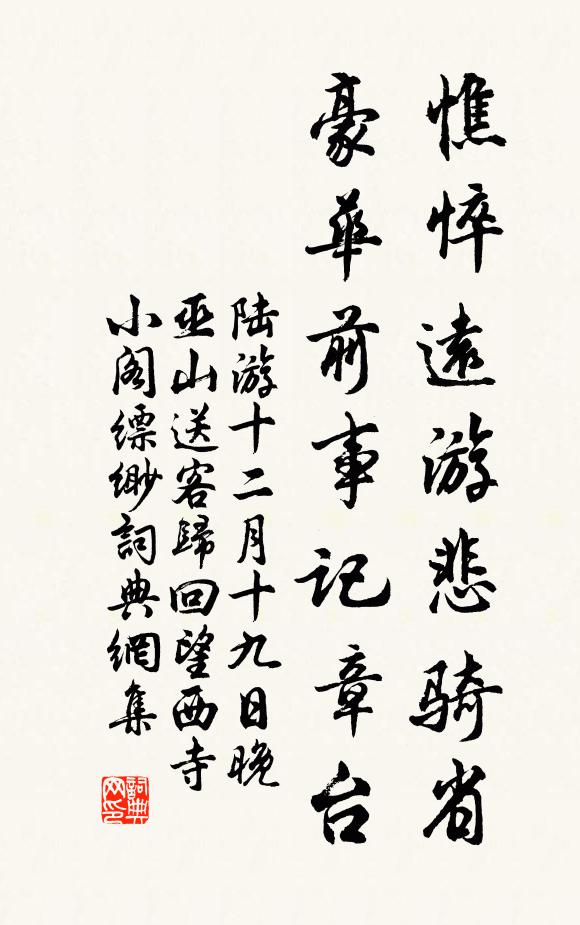 憔悴遠游悲骑省
豪華前事记章台
陆游十二月十九日晚
巫山送客歸回望西寺
小阁缥缈詞典網集
詞典网印